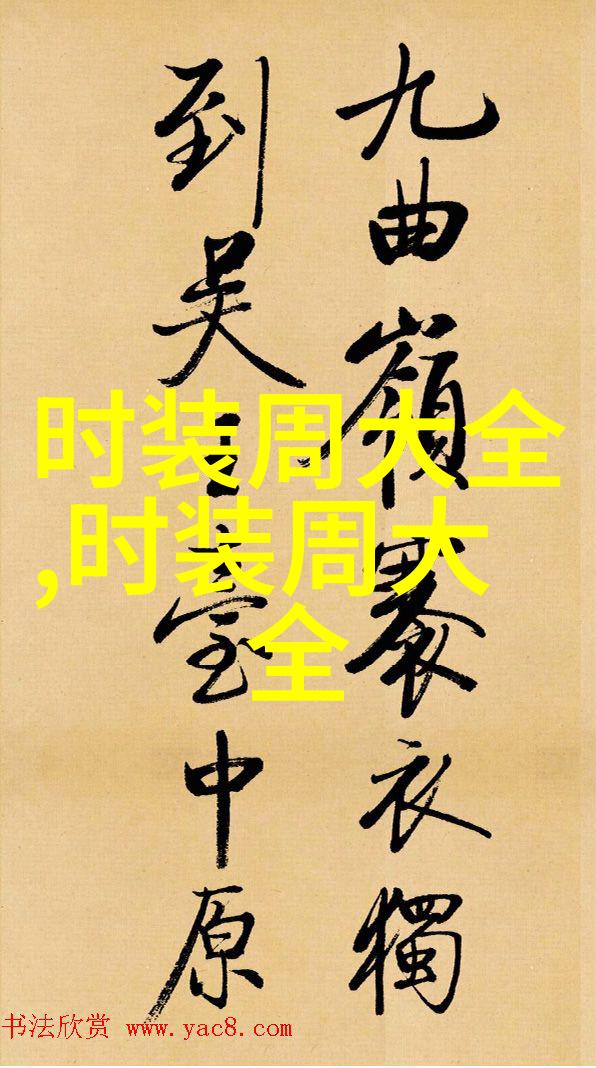 九曲嶺衣獨
到吴臺中原
时装周大全
,时装周大
全
书法欣赏 www.yac8.com